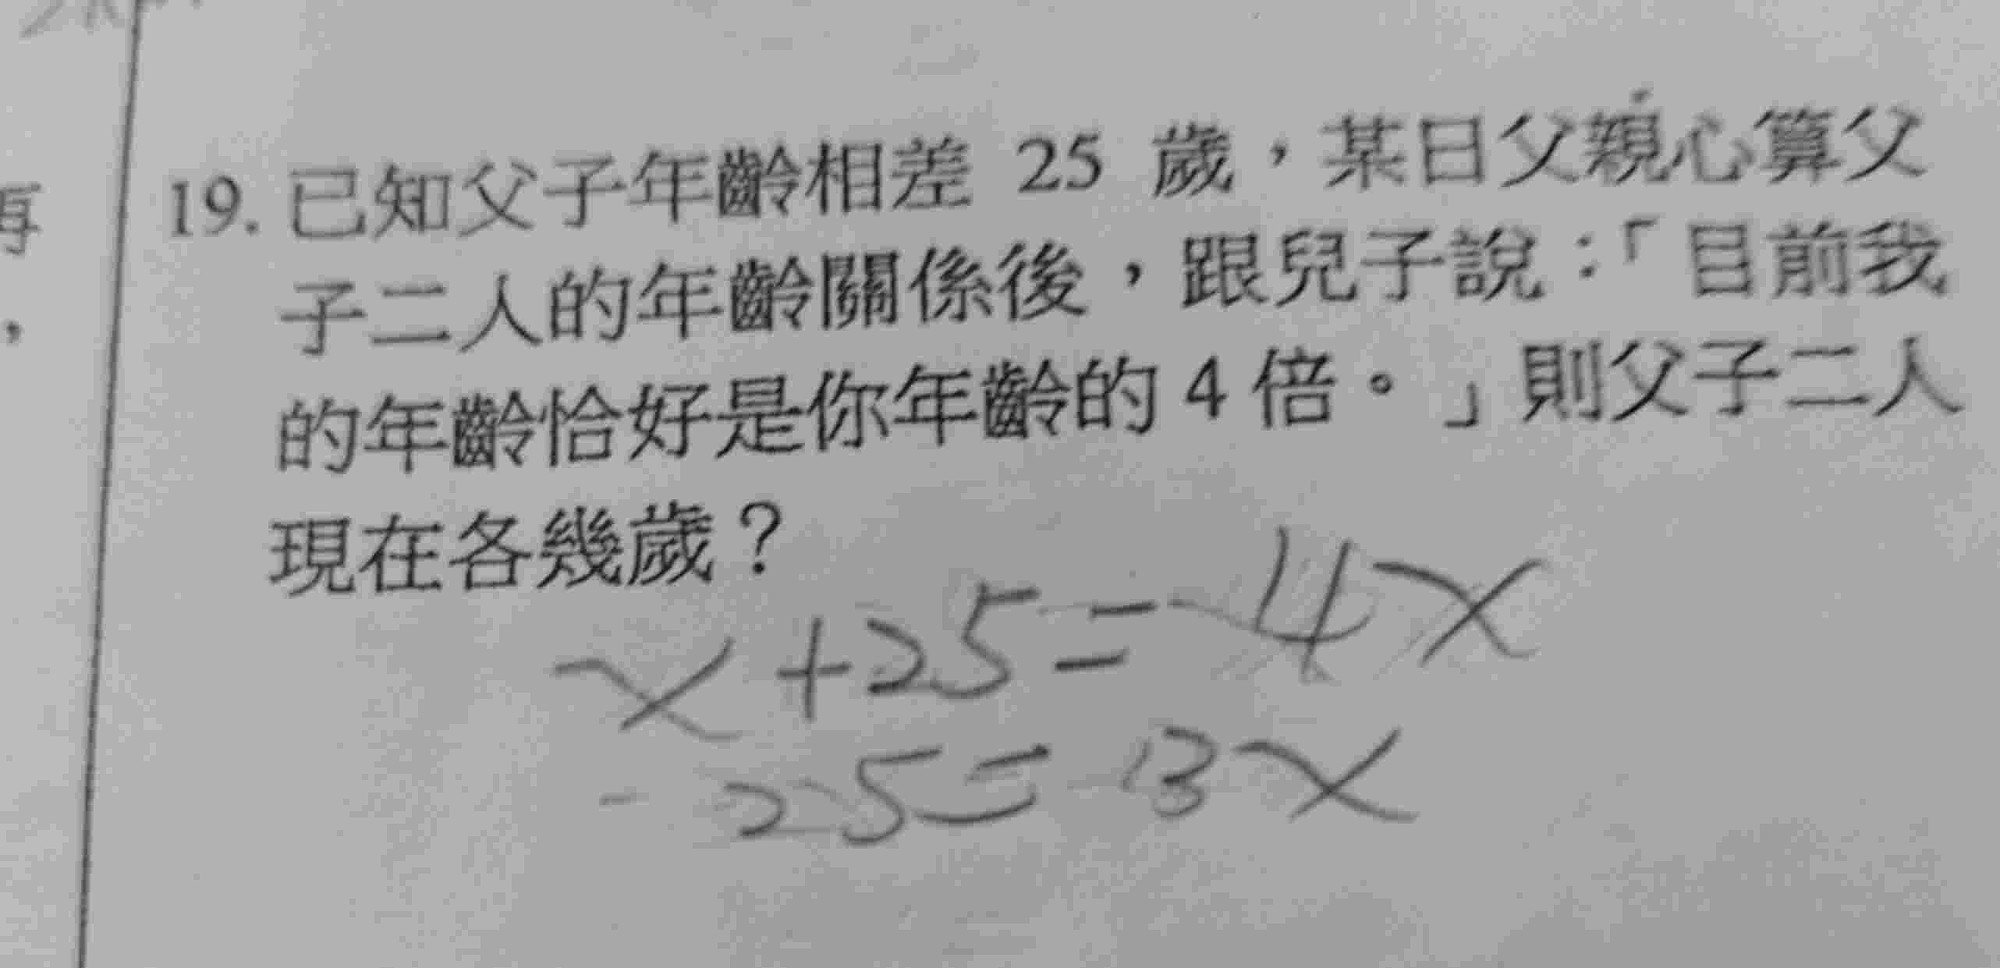 再
，
19. 已知父子年齡相差 25 歲，某日父親心算父
子二人的年齡關係後，跟兒子說：「目前我
的年齡恰好是你年齡的 4 倍。」則父子二人
現在各幾歲？
x+25=4x
25=3x